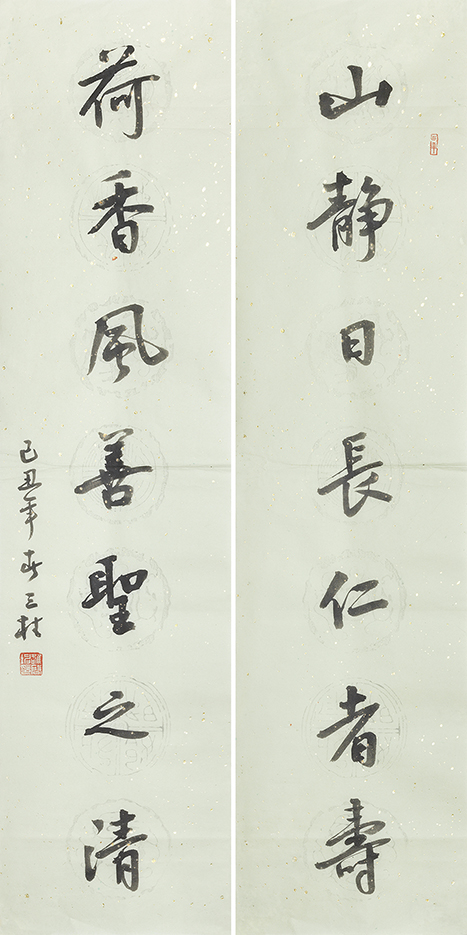 山靜日長仁者壽
荷香風善聖之清
己丑年春三社